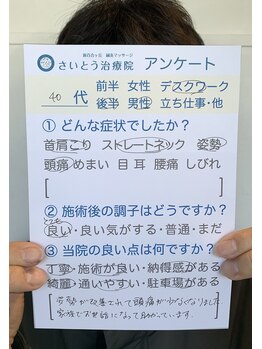 新百合ヶ丘 鍼灸マッサージ
さいとう治療院 アンケート
40 代 前半 女性 デスクワーク
後半 男性 立ち仕事・他
① どんな症状でしたか？
首肩こり ストレートネック 姿勢
頭痛 めまい 目 耳 腰痛 しびれ
[ ]
② 施術後の調子はどうですか？
とても
良い・良い気がする・普通・まだ
③ 当院の良い点は何ですか？
丁寧・施術が良い・納得感がある
綺麗・通いやすい・駐車場がある
姿勢が改善されて頭痛が少なくなりました
家族でお世話になって助かっています。